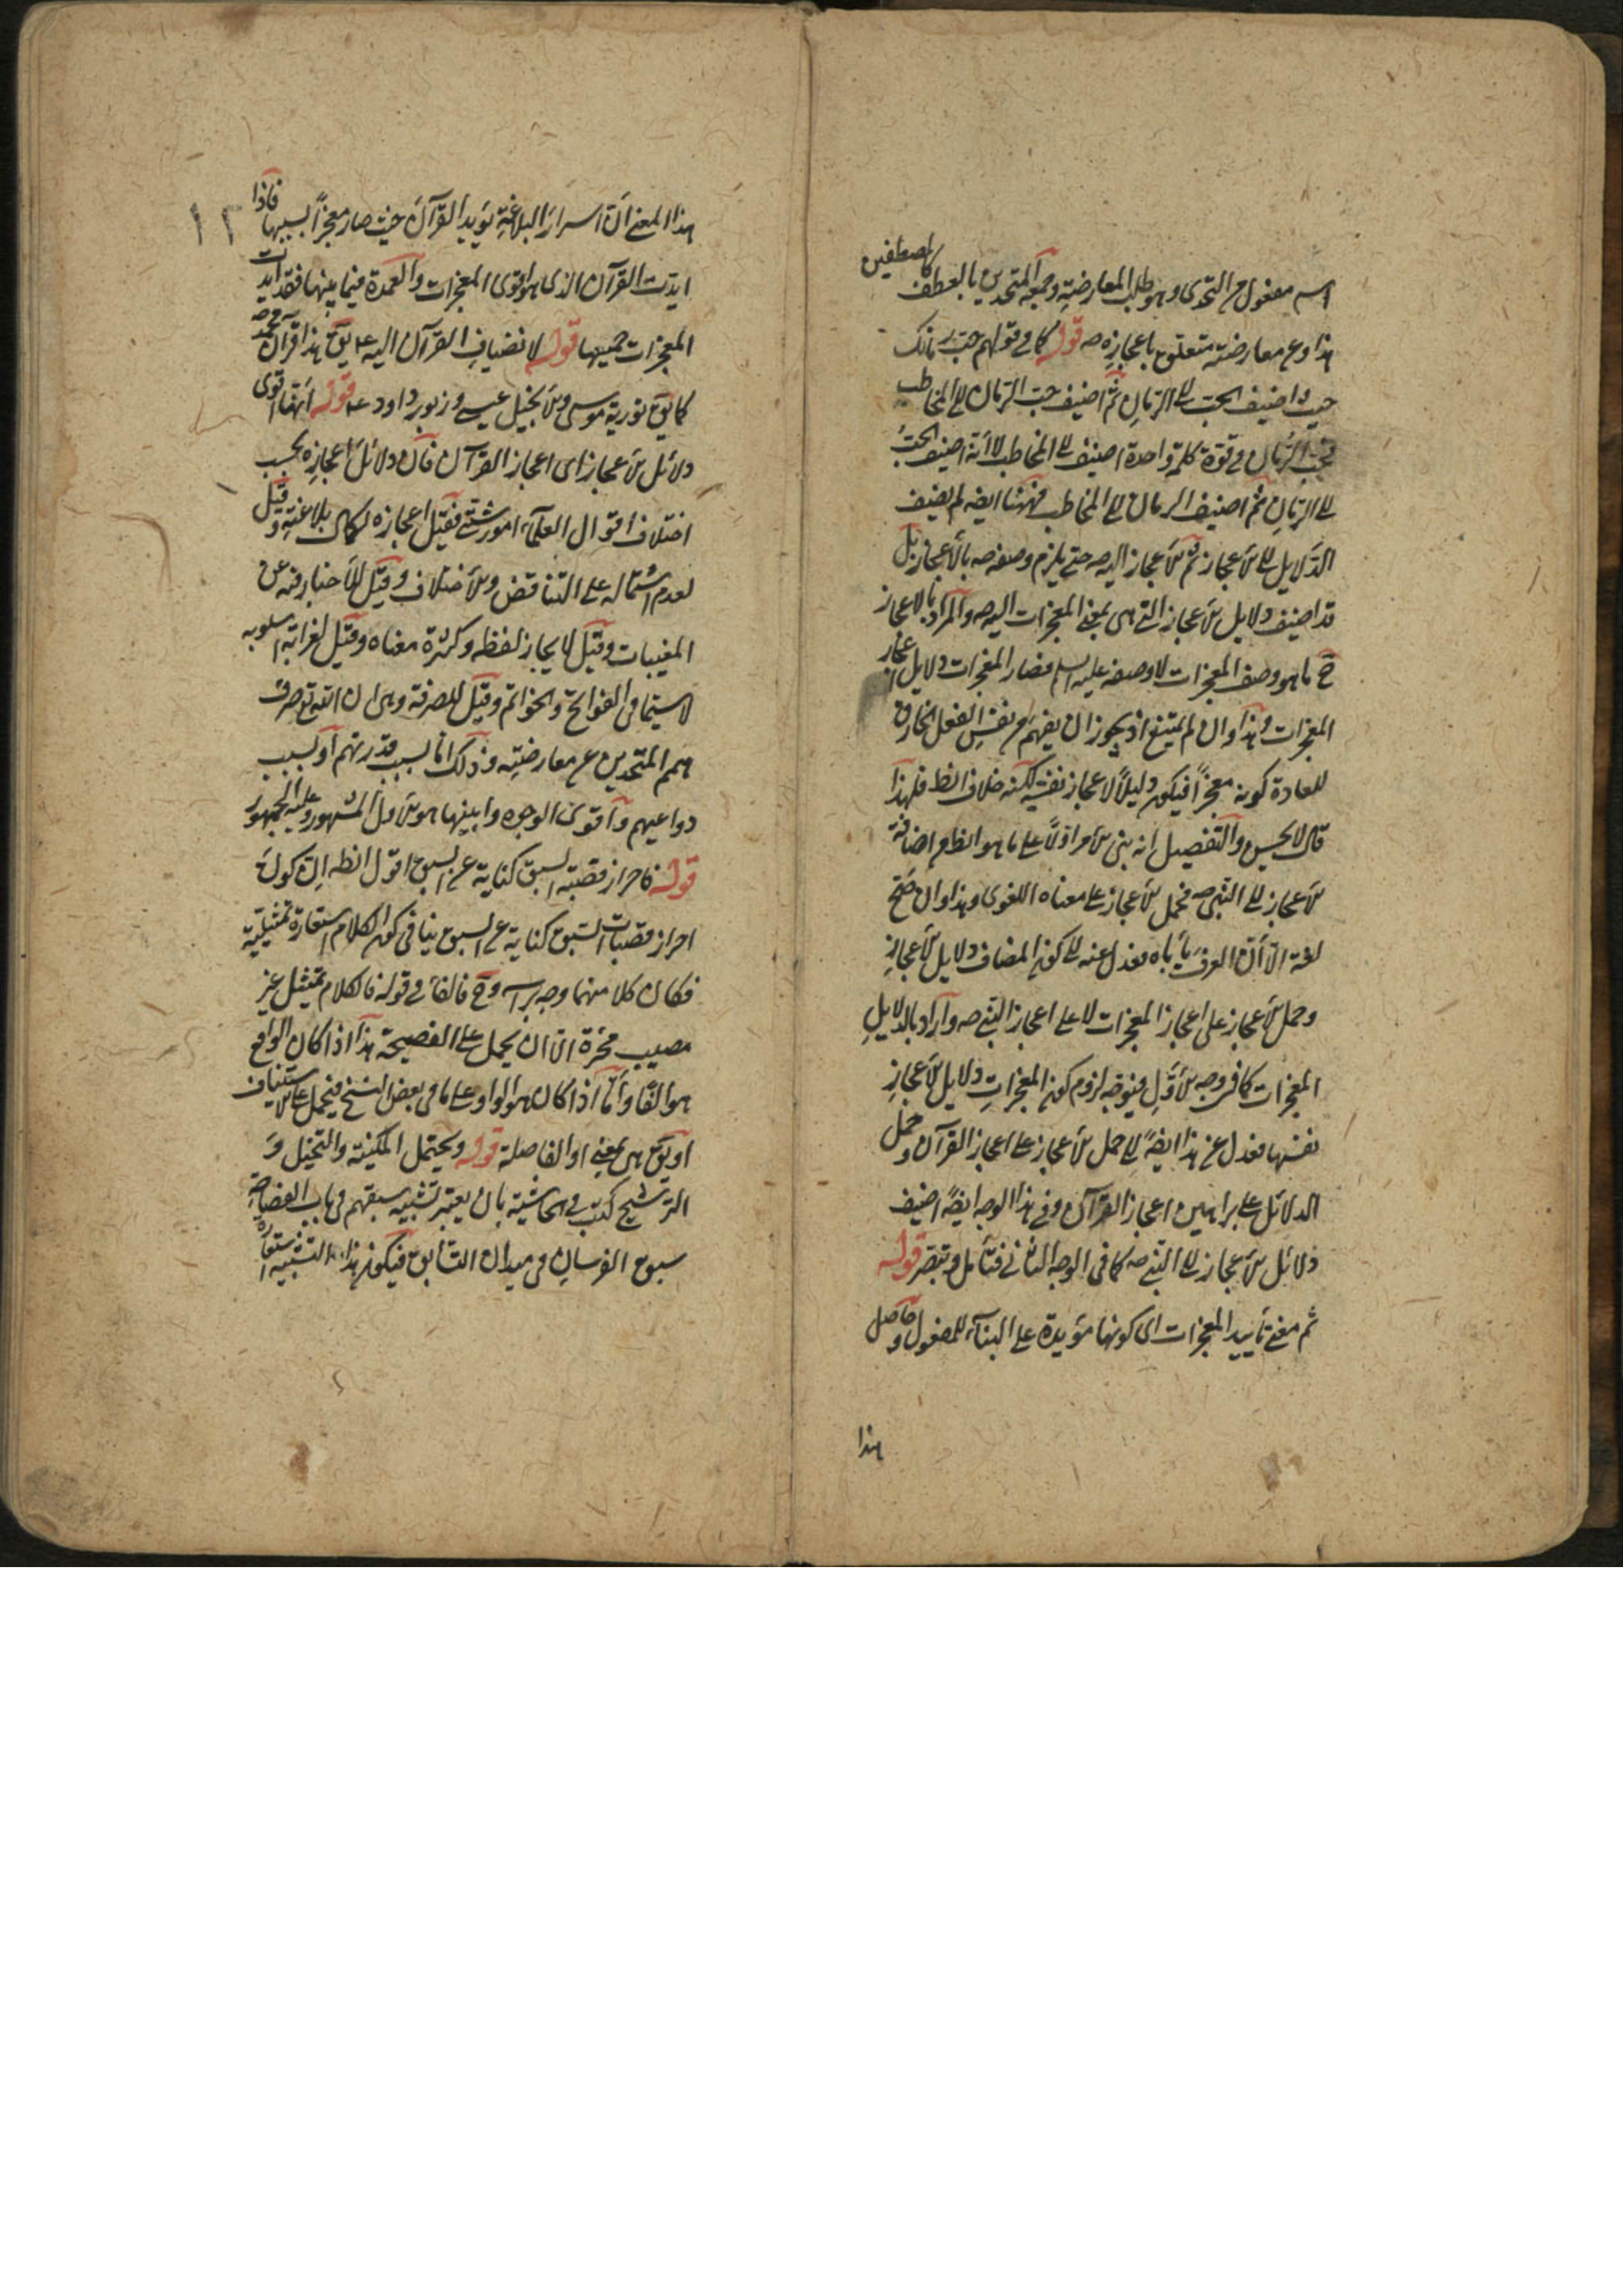 اسم مفعول من التحدى وهو طلب المعارضة وجمعه المتحدين بالعطف كالمصطفين
هذا وعن معارضته متعلق باعجازه صه قوله كما فى قولهم حبّ رمانك
حيث اضيف الحب الى الرمان ثم اضيف حب الرمان الى المخاطب
فحب الرمان فى قوة كلمة واحدة اضيف الى المخاطب لا انه اضيف الحبّ
الى الرمان ثم اضيف الرمان الى المخاطب فههنا ايضا لم يضيف
الدلايل الى الاعجاز ثم الاعجاز اليه صه حتى يلزم وصفه صه بالاعجاز بل
قد اضيف دلايل الاعجاز التى هى بمعنى المعجزات اليه صه والمراد بالاعجاز
ح ما هو وصف المعجزات لا وصفه عليه السلم فصار المعجزات دلايل اعجاز
المعجزات وهذا وان لم يمتنع اذ يجوز ان يفهم من نفس الفعل الخارق
للعادة كونه معجزا فيكون دليلا لاعجاز نفسه لكنه خلاف الظ فلهذا
قال لا يحسن والتفصيل انه بنى الامر اولا على ما هو الظ من اضافة
الاعجاز الى النبى صه فحمل الاعجاز على معناه اللغوى وهذا وان صح
لغة الا ان العرف يأباه فعدل عنه الى كون المضاف دلايل الاعجاز
وحمل الاعجاز على اعجاز المعجزات لا على اعجاز النبى صه واراد بالدلايل
المعجزات كما فى وجه الاول فيتوجه لزوم كون المعجزات دلايل الاعجاز
نفسها فعدل عن هذا ايضا الى حمل الاعجاز على اعجاز القرآن وحمل
الدلائل على براهين اعجاز القرآن وفى هذا الوجه ايضا اضيف
دلائل الاعجاز الى النبى صه كما فى الوجه الثانى فتأمل وتبصر قوله
ثم معنى تأييد المعجزات اى كونها مؤيدة على البناء للمفعول وحاصل
هذا
هذا المعنى ان اسرار البلاغة يؤيد القرآن حيث صار معجزا بسببها فاذا
١٢
ايدت القرآن الذى هو اقوى المعجزات والعمدة فيما بينها فقد ايدت
المعجزات جميعها قوله لا نضياف القرآن اليه عم يق هذا قرآن محمد صه
كما يق تورية موسى والانجيل عيسى وزبور داود عم قوله انها اقوى
دلائل الاعجاز اى اعجاز القرآن فان دلائل اعجازه بحسب
اختلاف اقوال العلماء امور شتى فقيل اعجازه لكمال بلاغته وقيل
لعدم اشتماله على التناقض والاختلاف وقيل للاخبار فيه عن
المغيبات وقيل لايجاز لفظه وكثرة معناه وقيل لغرابة اسلوبه
لا سيما فى الفواتح والخواتم وقيل للصرفة وهى ان الله تع صرف
همم المتحدين عن معارضته وذلك اما بسبب قدرتهم او بسبب
دواعيهم واقوى الوجوه وابينها هو الاول المشهور وعليه الجمهور
قوله فاحراز قصبة السبق كناية عن السبق اقول الظ ان كون
احراز قصبات السبق كناية عن السبق ينافى كون الكلام استعارة تمثيلية
فكان كلا منهما وجه برأسه وح فالفاء فى قوله فالكلام تمثيل غير
مصيب محزة الا ان يحمل على الفصيحة هذا اذا كان الواقع
هو الفاء واما اذا كان هو الواو على ما فى بعض النسخ فيحمل على الاستيناف
او يق هى بمعنى او الفاصلة قوله ويحتمل المكنية والتخييل و
الترشيح كتب فى الحاشية بان يعتبر تشبيه سبقهم فى باب الفصاحة
سبق الفرسان فى ميدان التسابق فيكون هذا التشبيه استعارة